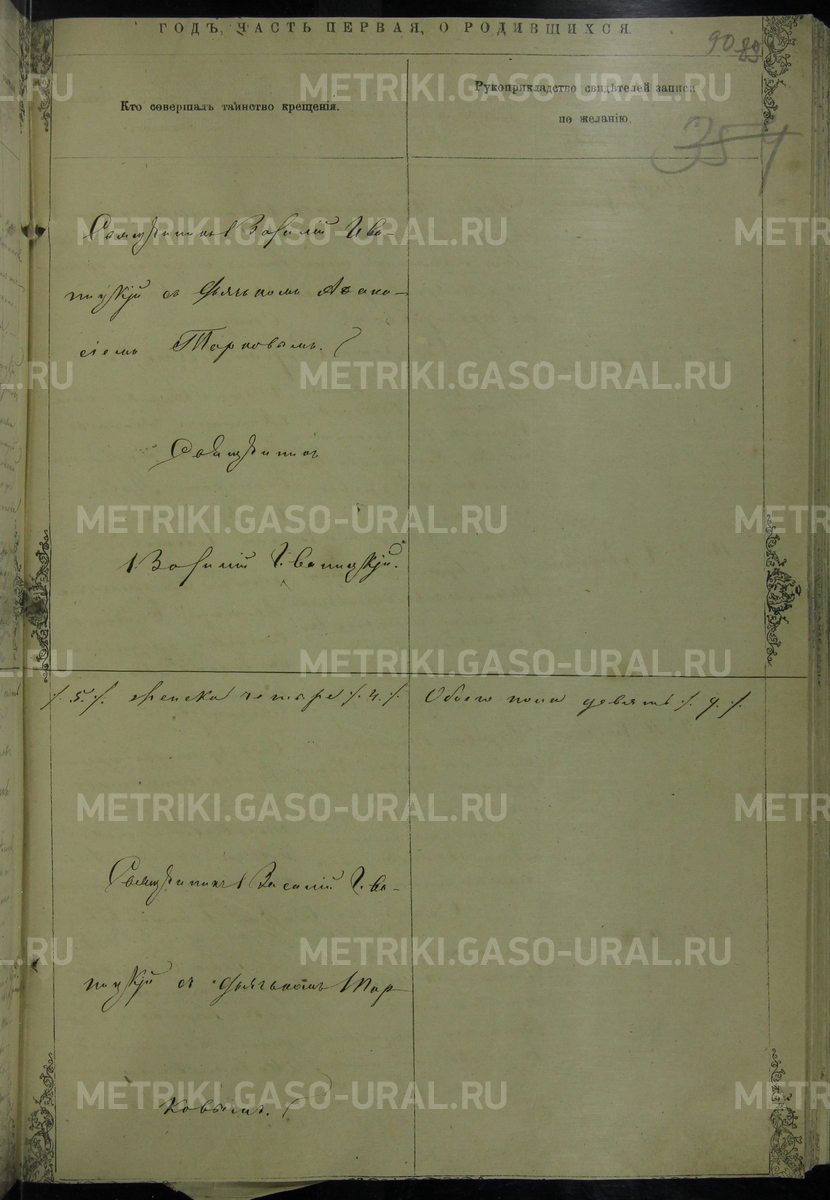 ГОДЪ, ЧАСТЬ ПЕРВАЯ, О РОДИВШИХСЯ.
90 89
Кто совершалъ таинство крещенія.
Рукоприкладство свидѣтелей записи
по желанію.
354
Священникъ Василій Ива-
ницкій съ дьячкомъ Афана-
сіемъ Тарковымъ.
Священникъ
Василій Иваницкій.
/. 5. /. женска четыре /. 4. /.
Обоего пола девять /. 9. /.
Священникъ Василій Ива-
ницкій съ дьячкомъ Тар-
ковымъ.
METRIKI.GASO-URAL.RU